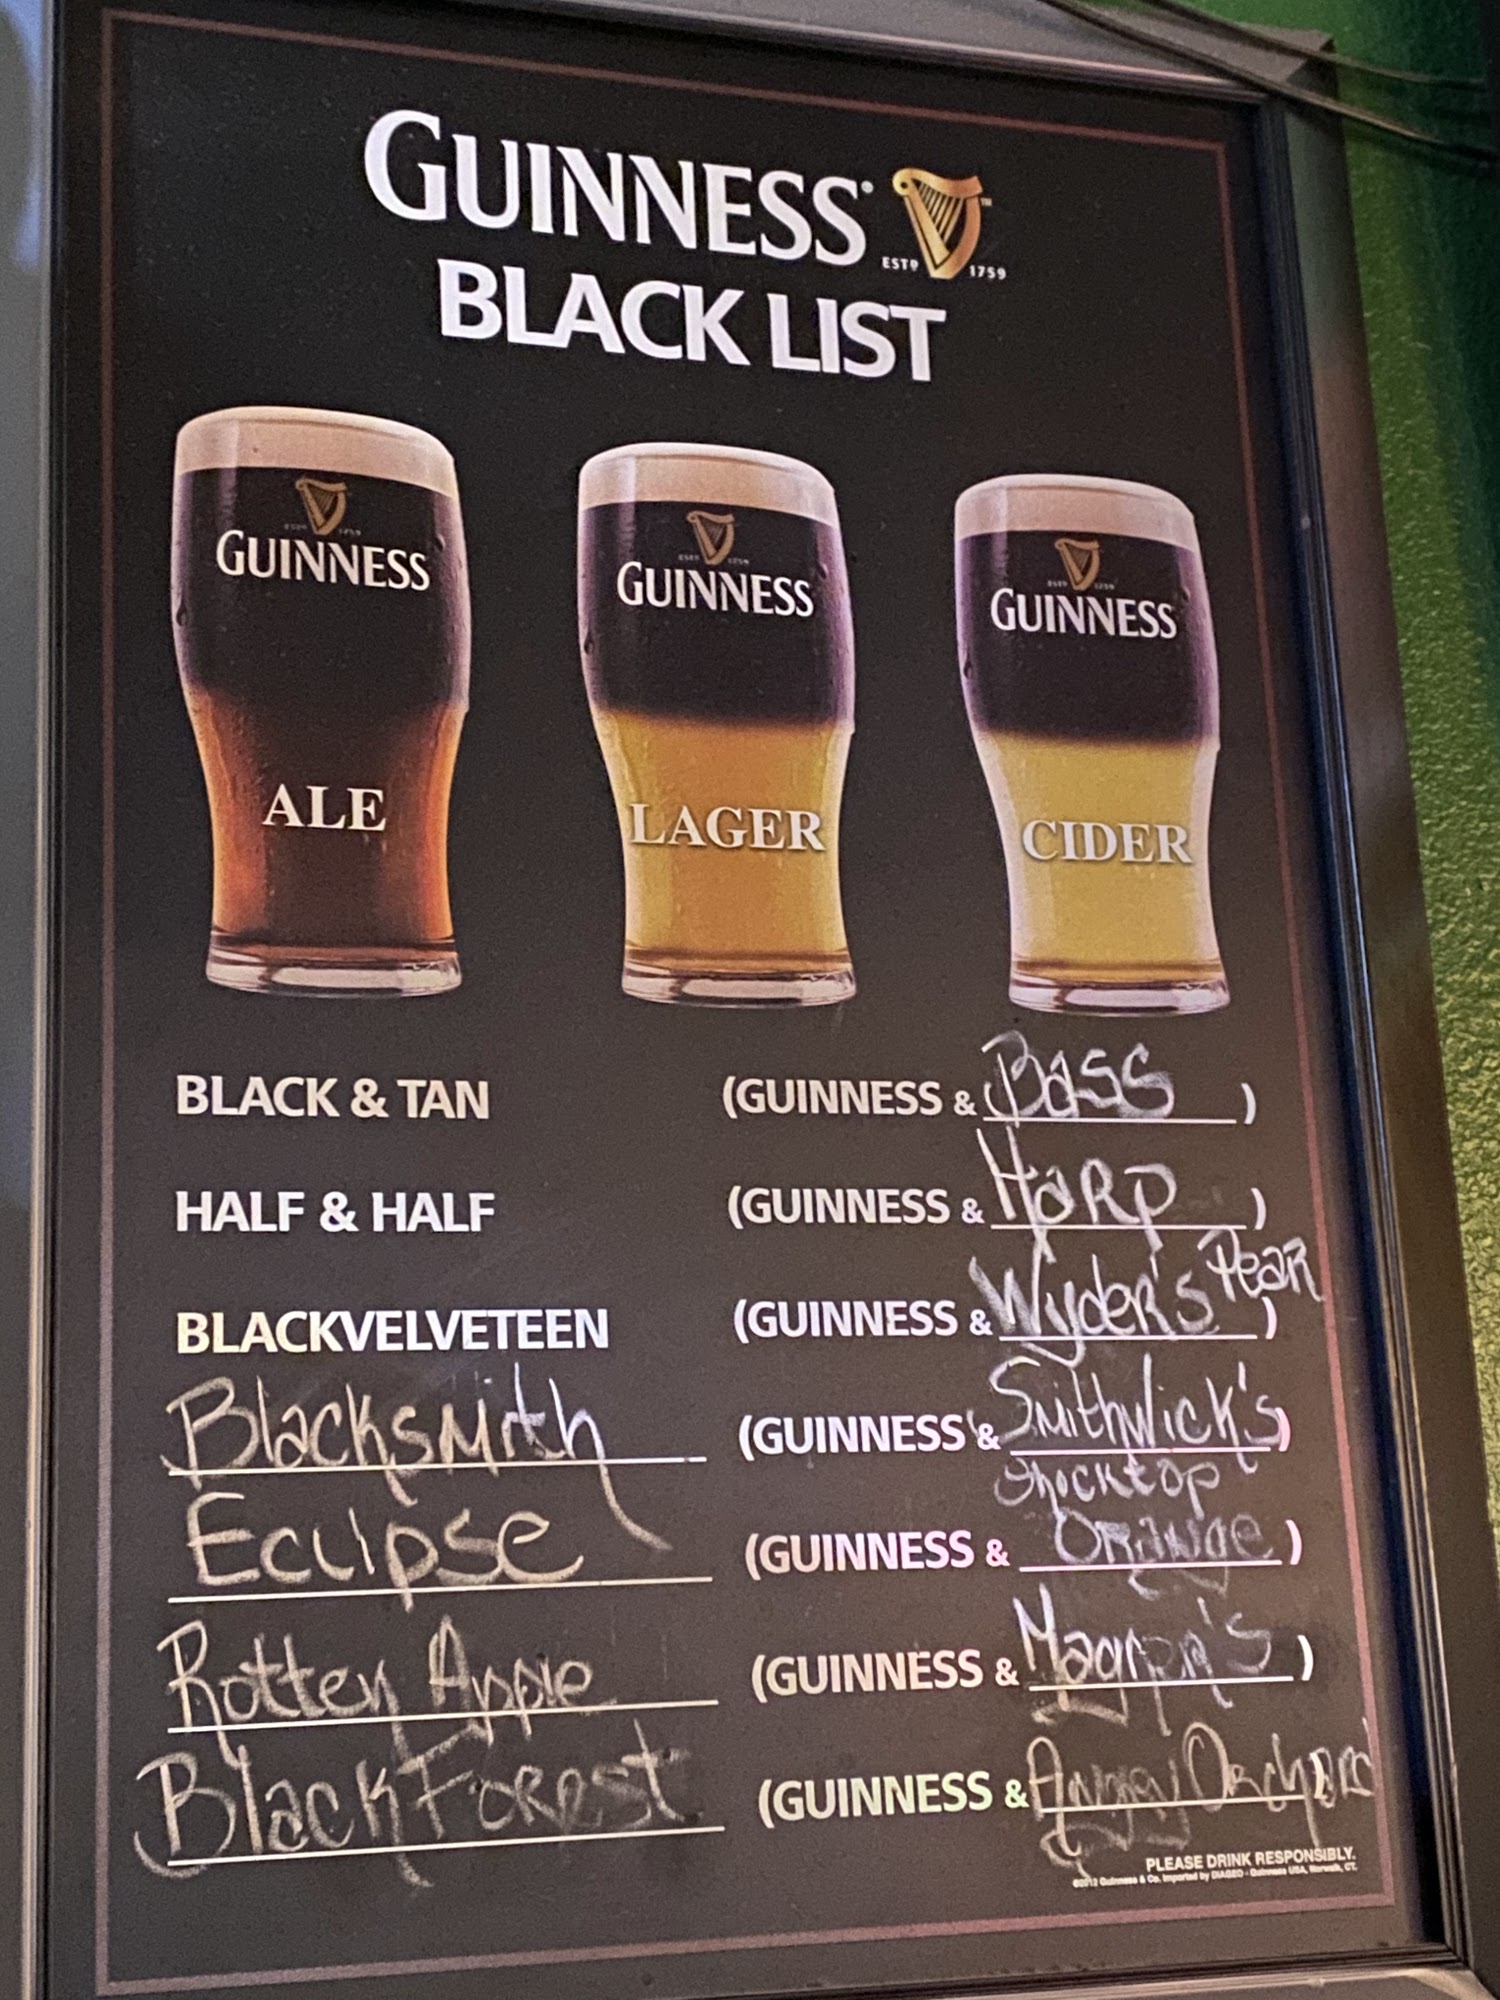 GUINNESS®
ESTD 1759 ™
BLACK LIST
ESTD 1759
GUINNESS
ALE
ESTD 1759
GUINNESS
LAGER
ESTD 1759
GUINNESS
CIDER
BLACK & TAN (GUINNESS & Bass)
HALF & HALF (GUINNESS & Harp)
BLACKVELVETEEN (GUINNESS & Wyder's Pear)
Blacksmith (GUINNESS & Smithwick's)
Eclipse (GUINNESS & Shocktop Orange)
Rotten Apple (GUINNESS & Magner's)
Black Forest (GUINNESS & Angry Orchard)
PLEASE DRINK RESPONSIBLY.
©2012 Guinness & Co. Imported by DIAGEO - Guinness USA, Norwalk, CT.